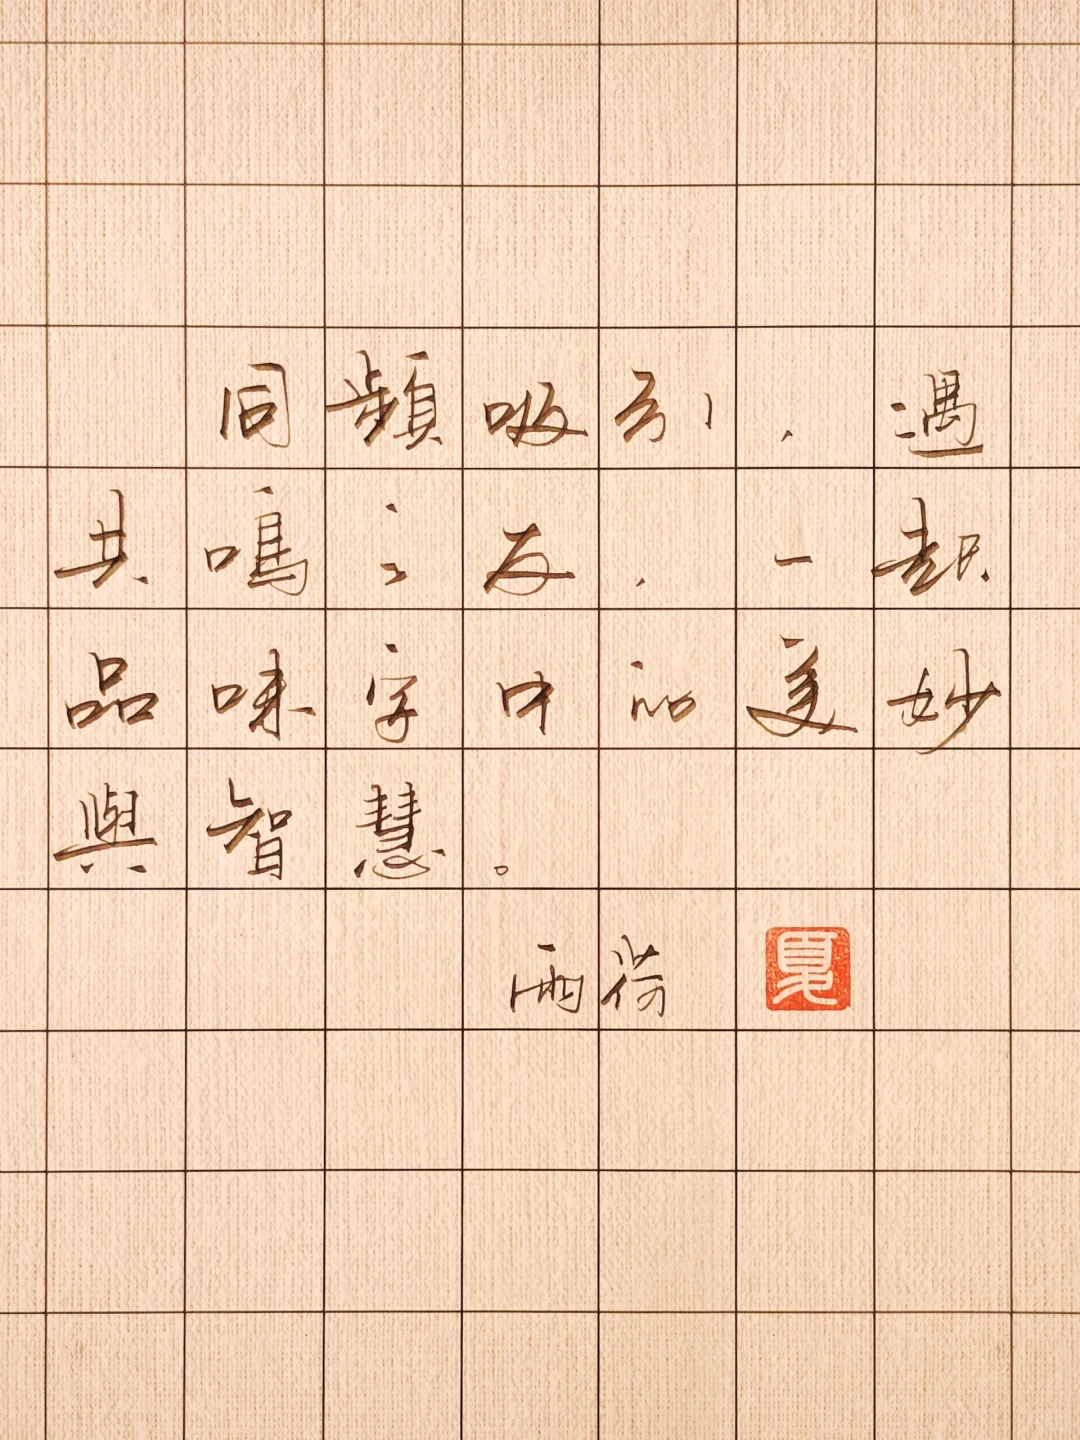 同頻吸引，遇
共鳴之友，一起
品味字中的美妙
與智慧。
雨荷 夏